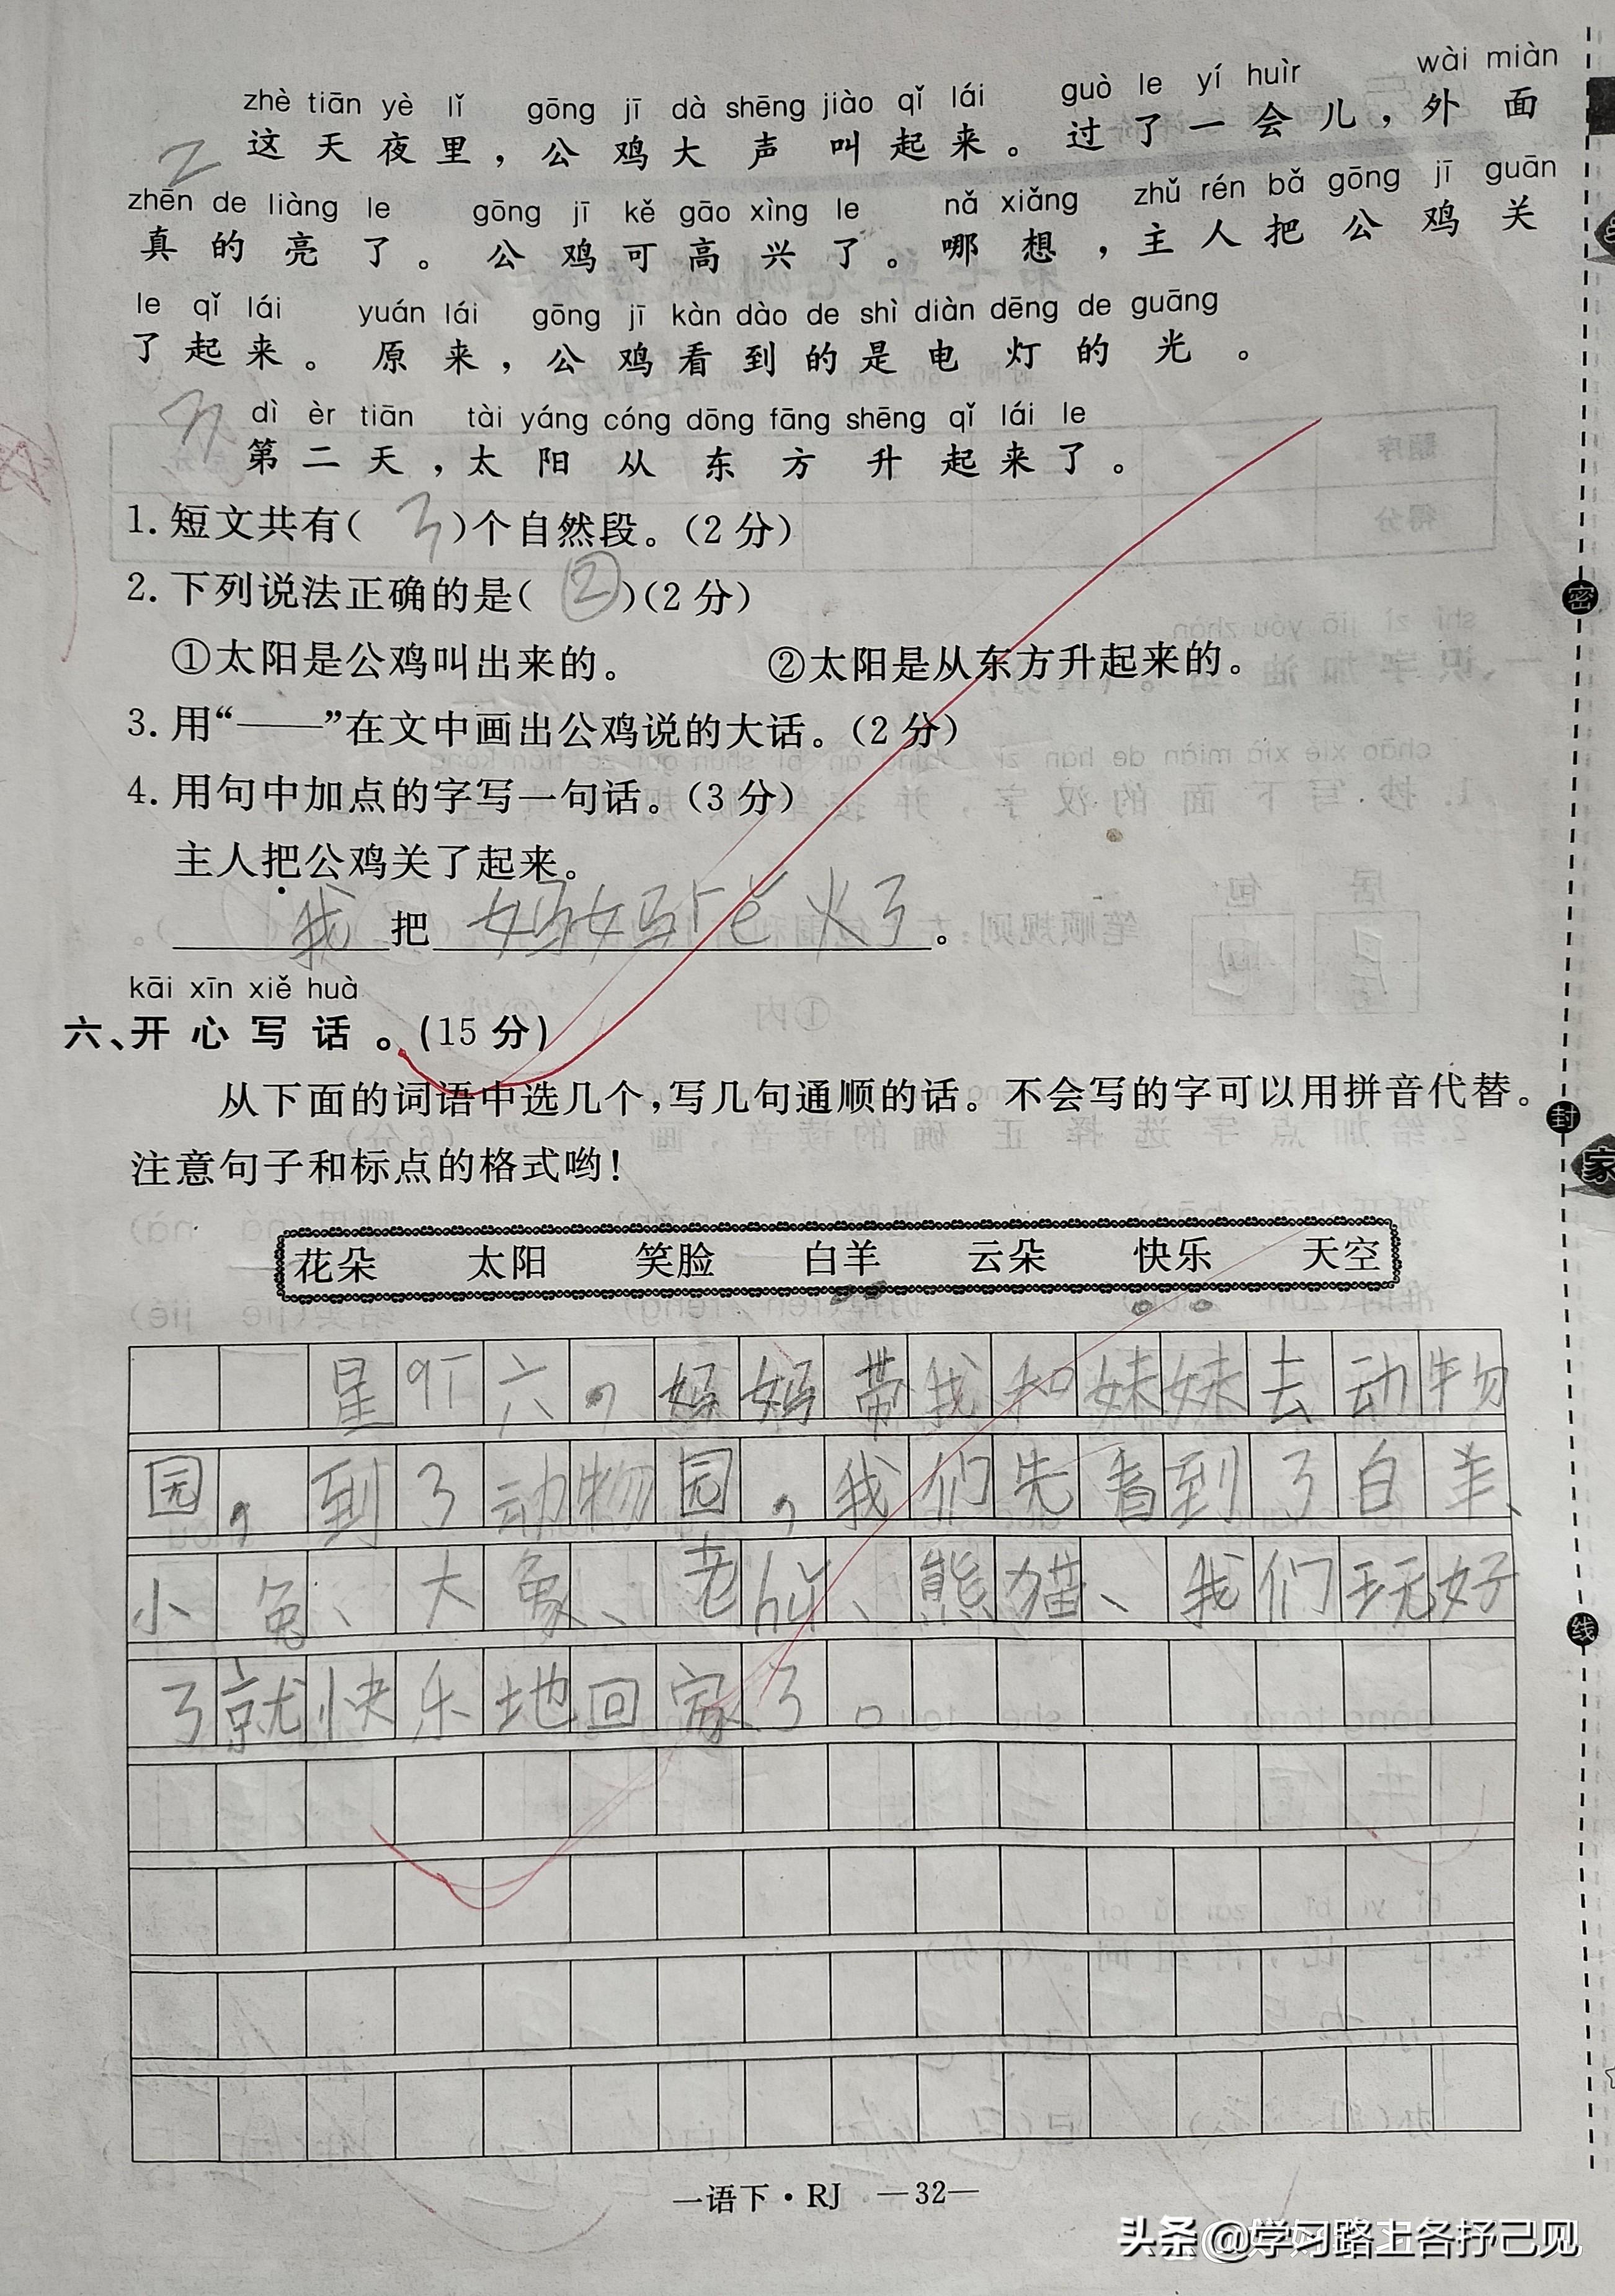 zhè tiān yè lǐ gōng jī dà shēng jiào qǐ lái guò le yí huìr wài miàn
2 这天夜里，公鸡大声叫起来。过了一会儿，外面
zhēn de liàng le gōng jī kě gāo xìng le nǎ xiǎng zhǔ rén bǎ gōng jī guān
真的亮了。公鸡可高兴了。哪想，主人把公鸡关
le qǐ lái yuán lái gōng jī kàn dào de shì diàn dēng de guāng
了起来。原来，公鸡看到的是电灯的光。
dì èr tiān tài yáng cóng dōng fāng shēng qǐ lái le
第二天，太阳从东方升起来了。
1. 短文共有( 3 )个自然段。(2分)
2. 下列说法正确的是( ② )(2分)
①太阳是公鸡叫出来的。 ②太阳是从东方升起来的。
3. 用“——”在文中画出公鸡说的大话。(2分)
4. 用句中加点的字写一句话。(3分)
主人把公鸡关了起来。
我把妈妈rě火了。
kāi xīn xiě huà
六、开心写话。(15分)
从下面的词语中选几个,写几句通顺的话。不会写的字可以用拼音代替。
注意句子和标点的格式哟!
花朵 太阳 笑脸 白羊 云朵 快乐 天空
星qī六，妈妈带我和妹妹去动物
园，到了动物园，我们先看到了白羊、
小兔、大象、老hǔ、熊猫、我们玩好
了就快乐地回家了。
一语下·RJ —32—
密
封
线
家
头条@学习路上各抒己见